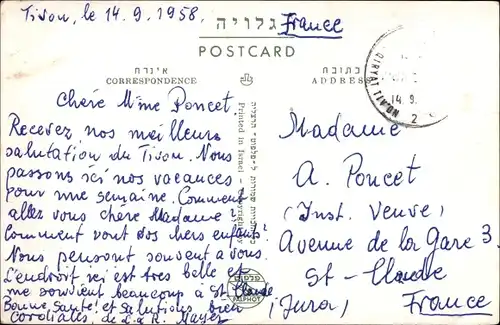 Tivon, le 14.9.1958.
France
גלויה
POSTCARD
אינרת
CORRESPONDENCE
כתובת
ADDRESS
QIRYAT
14.9.
2
Chère Mme Poncet.
Recevez nos meilleurs
salutation du Tivon. Nous
passons ici nos vacances
pour une semaine. Comment
allez vous chère Madame?
Comment vont vos chers enfants?
Nous pensons souvent a vous.
L'endroit ici est très belle et
me souvient beaucoup à St Claude
Bonne santé! et salutions bien
cordiales, de L. & R. Mayer
Printed in Israel - Copyright by
פלפוט
PALPHOT
Madame
A. Poncet
(Inst. Veuve)
Avenue de la Gare 3
St-Claude
(Jura) France